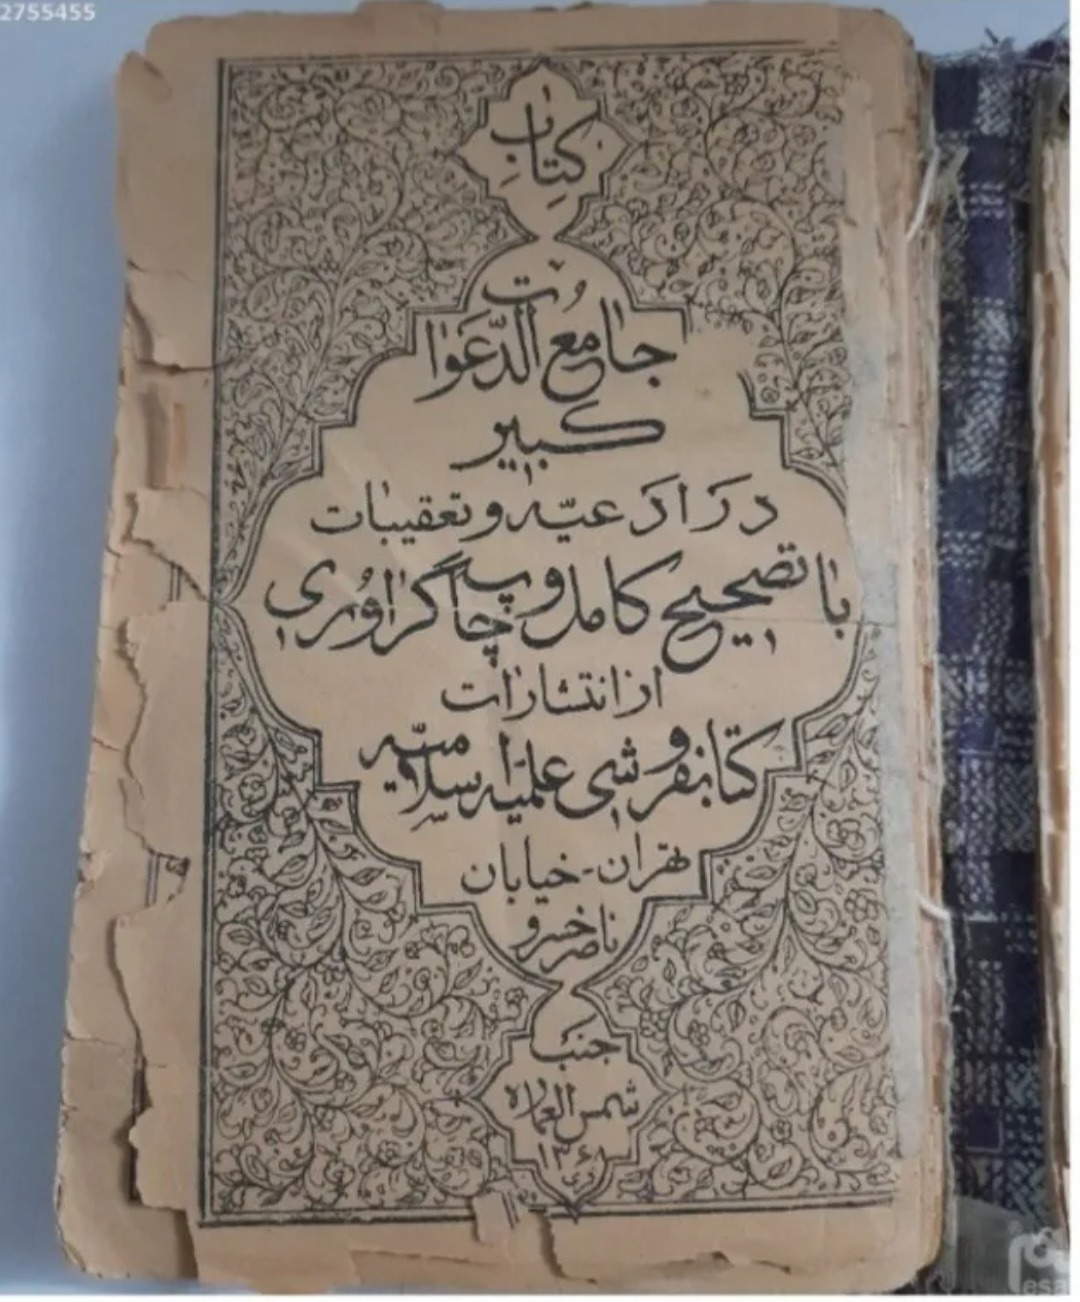 2755455
کتابِ
جامع الدّعوات
کبیر
در ادعیّه و تعقیبات
با تصحیح کامل و چاپ گراوُری
از انتشارات
کتابفروشی علمیّه اسلامیّه
تهران - خیابان
ناصرخسرو
جنب
شمس العماره
esa